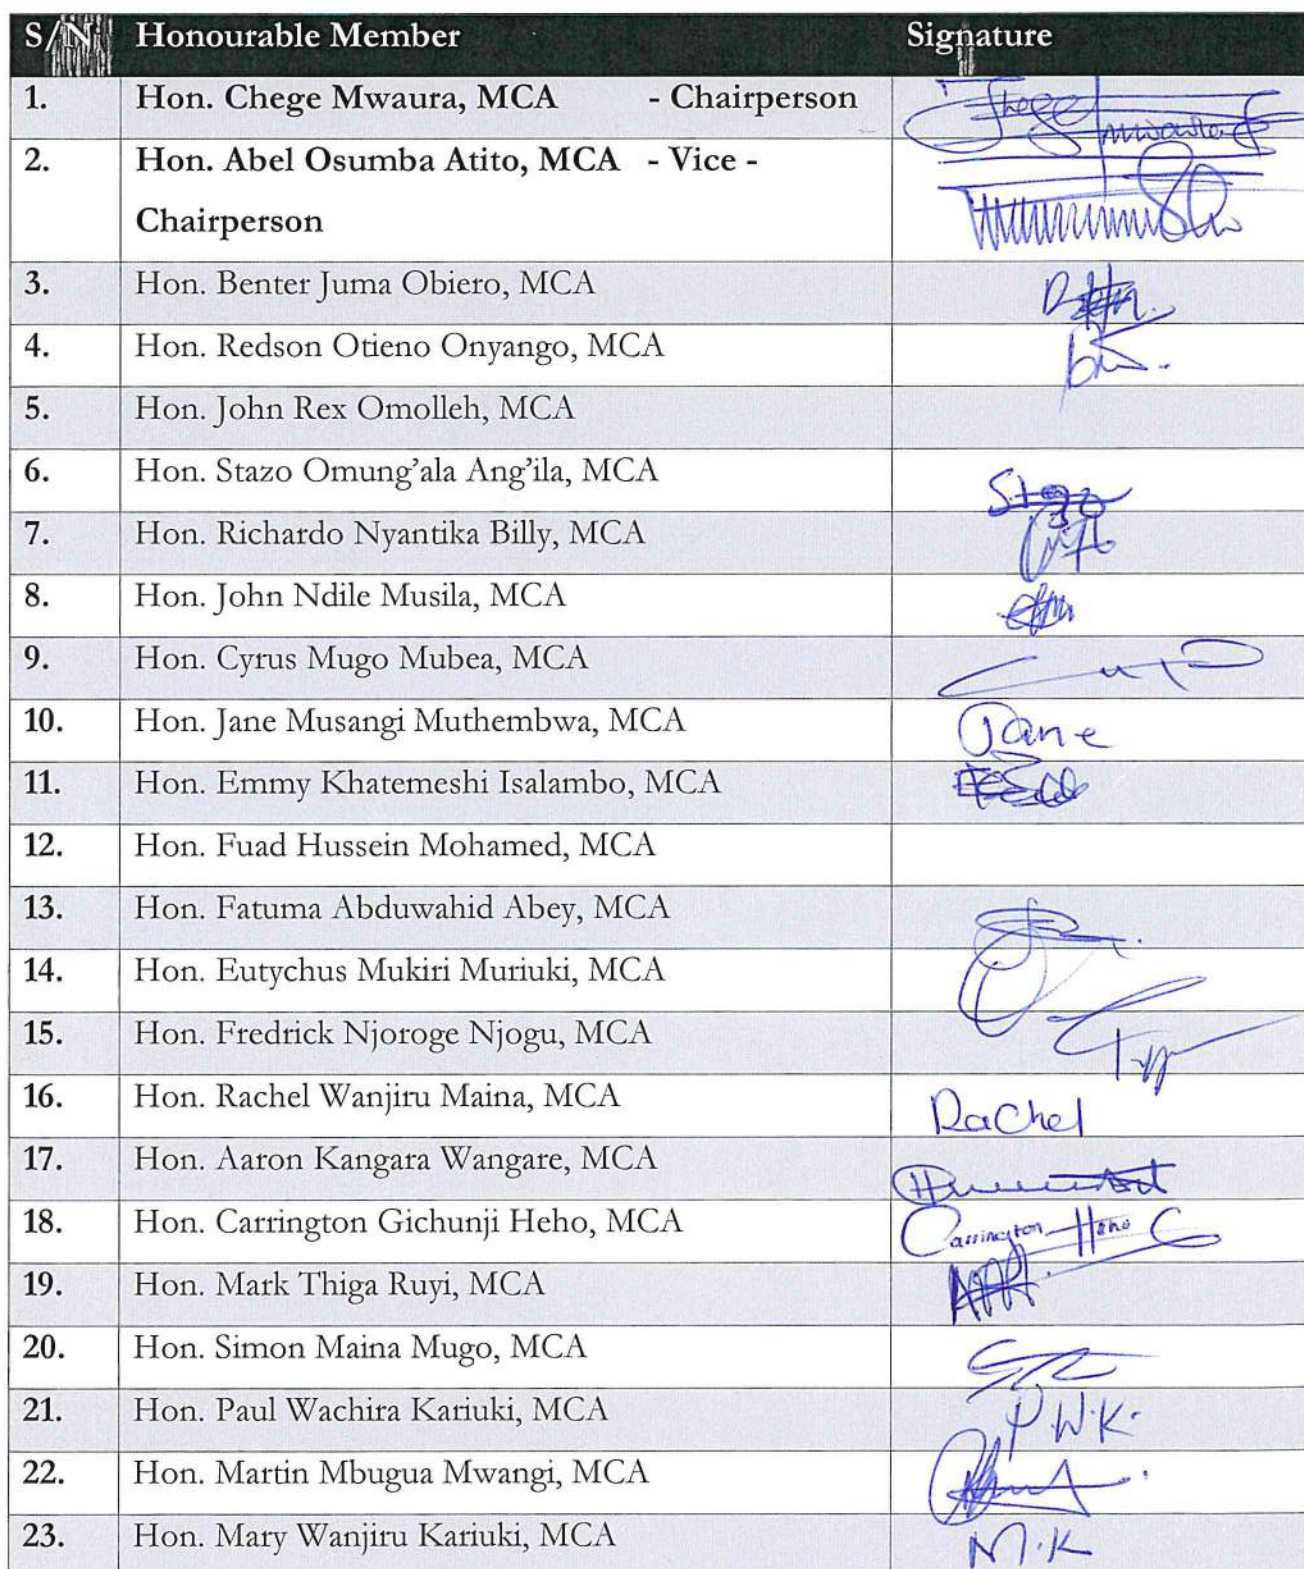 S/N Honourable Member Signature
1. Hon. Chege Mwaura, MCA - Chairperson Chege Mwaura
2. Hon. Abel Osumba Atito, MCA - Vice -
Chairperson
3. Hon. Benter Juma Obiero, MCA
4. Hon. Redson Otieno Onyango, MCA
5. Hon. John Rex Omolleh, MCA
6. Hon. Stazo Omung’ala Ang’ila, MCA
7. Hon. Richardo Nyantika Billy, MCA
8. Hon. John Ndile Musila, MCA
9. Hon. Cyrus Mugo Mubea, MCA
10. Hon. Jane Musangi Muthembwa, MCA Jane
11. Hon. Emmy Khatemeshi Isalambo, MCA
12. Hon. Fuad Hussein Mohamed, MCA
13. Hon. Fatuma Abduwahid Abey, MCA
14. Hon. Eutychus Mukiri Muriuki, MCA
15. Hon. Fredrick Njoroge Njogu, MCA
16. Hon. Rachel Wanjiru Maina, MCA Rachel
17. Hon. Aaron Kangara Wangare, MCA
18. Hon. Carrington Gichunji Heho, MCA Carrington Heho
19. Hon. Mark Thiga Ruyi, MCA
20. Hon. Simon Maina Mugo, MCA
21. Hon. Paul Wachira Kariuki, MCA P.W.K.
22. Hon. Martin Mbugua Mwangi, MCA
23. Hon. Mary Wanjiru Kariuki, MCA M.K